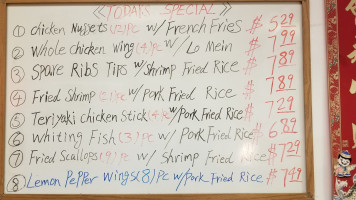 《TODAY'S SPECIAL》
① chicken Nuggets (12) PC w/ French Fries $ 5.29
② Whole chicken wing (4) PC w/ Lo Mein $ 7.99
③ Spare Ribs Tips w/ Shrimp Fried Rice $ 7.89
④ Fried Shrimp PC w/ Pork Fried Rice $ 7.89
⑤ Teriyaki chicken Stick w/ Pork Fried Rice $ 7.29
⑥ Whiting Fish (3) PC w/ Pork Fried Rice $ 6.89
⑦ Fried Scallops PC w/ Shrimp Fried Rice $ 7.29
⑧ Lemon Pepper Wings (8) PC w/ Pork Fried Rice $ 7.49